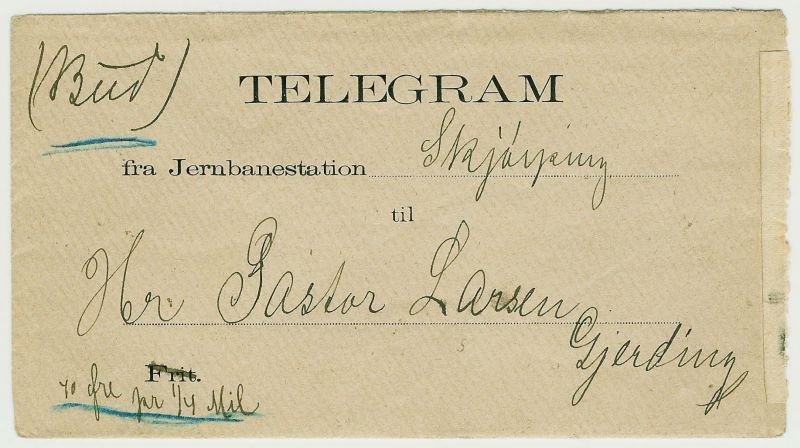 (Bud)
TELEGRAM
fra Jernbanestation Skjørping
til
Hr Pastor Larsen
Gjerding
Frit.
40 øre
pr 1/4 Mil